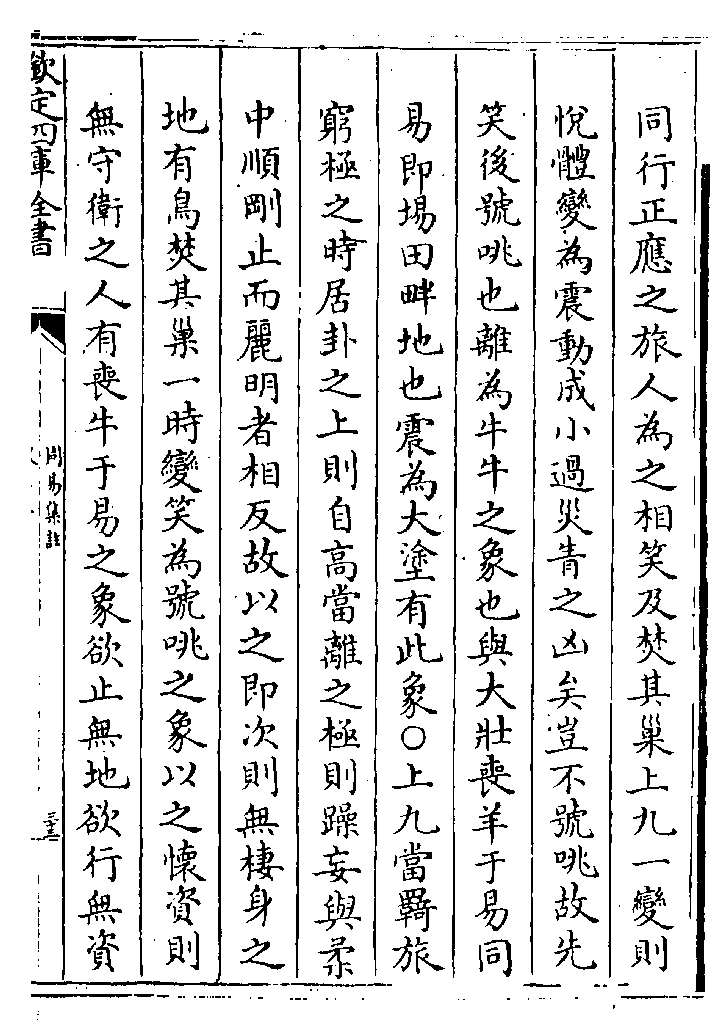 同行正應之旅人為之相笑及焚其巢上九一變則
悅體變為震動成小過災眚之凶矣豈不號咷故先
笑後號咷也離為牛牛之象也與大壯喪羊于易同
易即場田畔地也震為大塗有此象○上九當羇旅
窮極之時居卦之上則自高當離之極則躁妄與柔
中順剛止而麗明者相反故以之即次則無棲身之
地有鳥焚其巢一時變笑為號咷之象以之懷資則
無守衛之人有喪牛于易之象欲止無地欲行無資
欽定四庫全書
周易集註
三十三